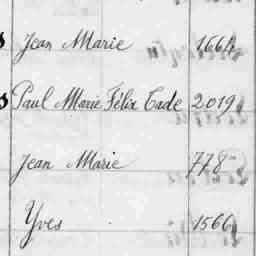 Jean Marie 1664
Paul Marie Félix Tade 2019
Jean Marie 778
Yves 1566